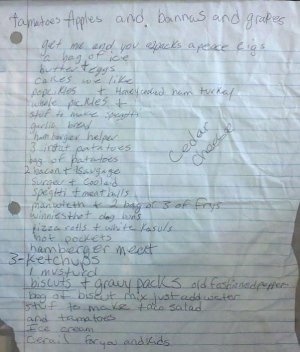 tamatoes Apples and bannas and grapes
get me and you 2 packs a peace Cigs
a bag of ice
butter + eggs
cakes we like
popcikles + Honeycured ham turkey
whole pickles +
stuf to make spegetti
garlic bread
hamburger helper
3 instat patatoes
bag of patatoes
2 bacon + Sausage
Surger + Coolaid
spegtti + meat balls
2 bag of 3 of frys
winnies + hot dog buns
pizza rolls + white
hot pockets
hamberger meet
3-ketchups
1 musturd
biscuts + gravy packs old fashioned pepper
bag of biscut mix just add water
stuf to make taco salad
and tamatoes
Ice cream
Cerail for you and kids
Cedar
Cheese